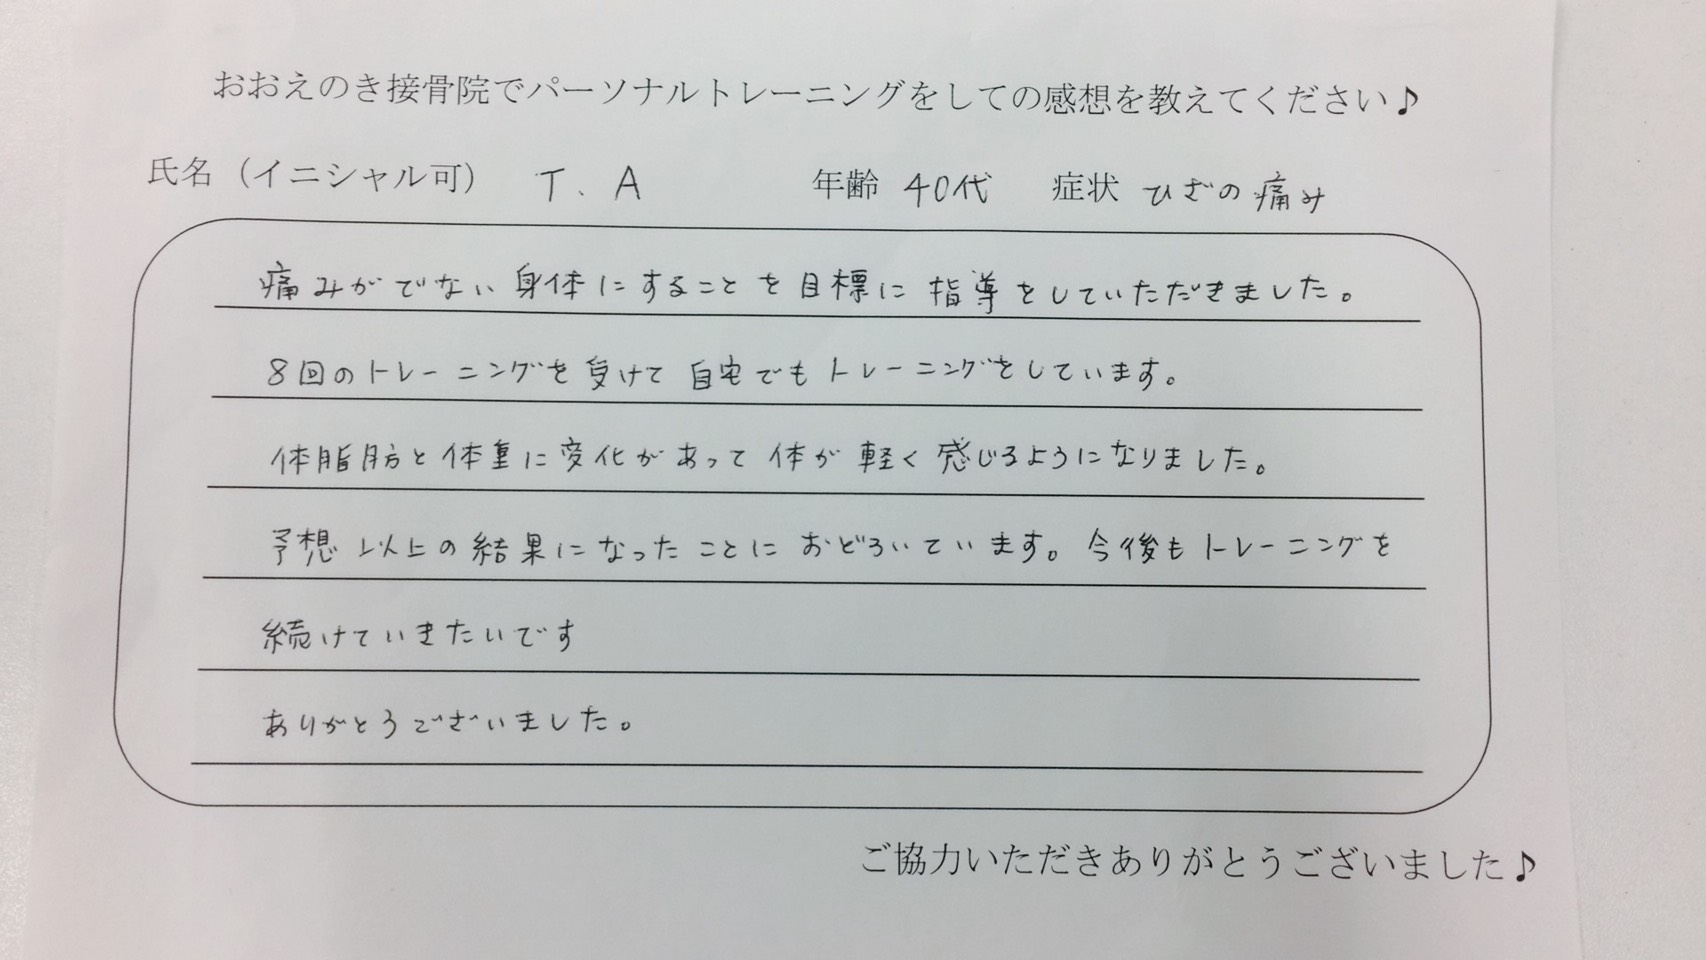 おおえのき接骨院でパーソナルトレーニングをしての感想を教えてください♪
氏名（イニシャル可） T.A 年齢 40代 症状 ひざの痛み
痛みがでない身体にすることを目標に指導をしていただきました。
8回のトレーニングを受けて自宅でもトレーニングをしています。
体脂肪と体重に変化があって体が軽く感じるようになりました。
予想以上の結果になったことにおどろいています。今後もトレーニングを
続けていきたいです
ありがとうございました。
ご協力いただきありがとうございました♪